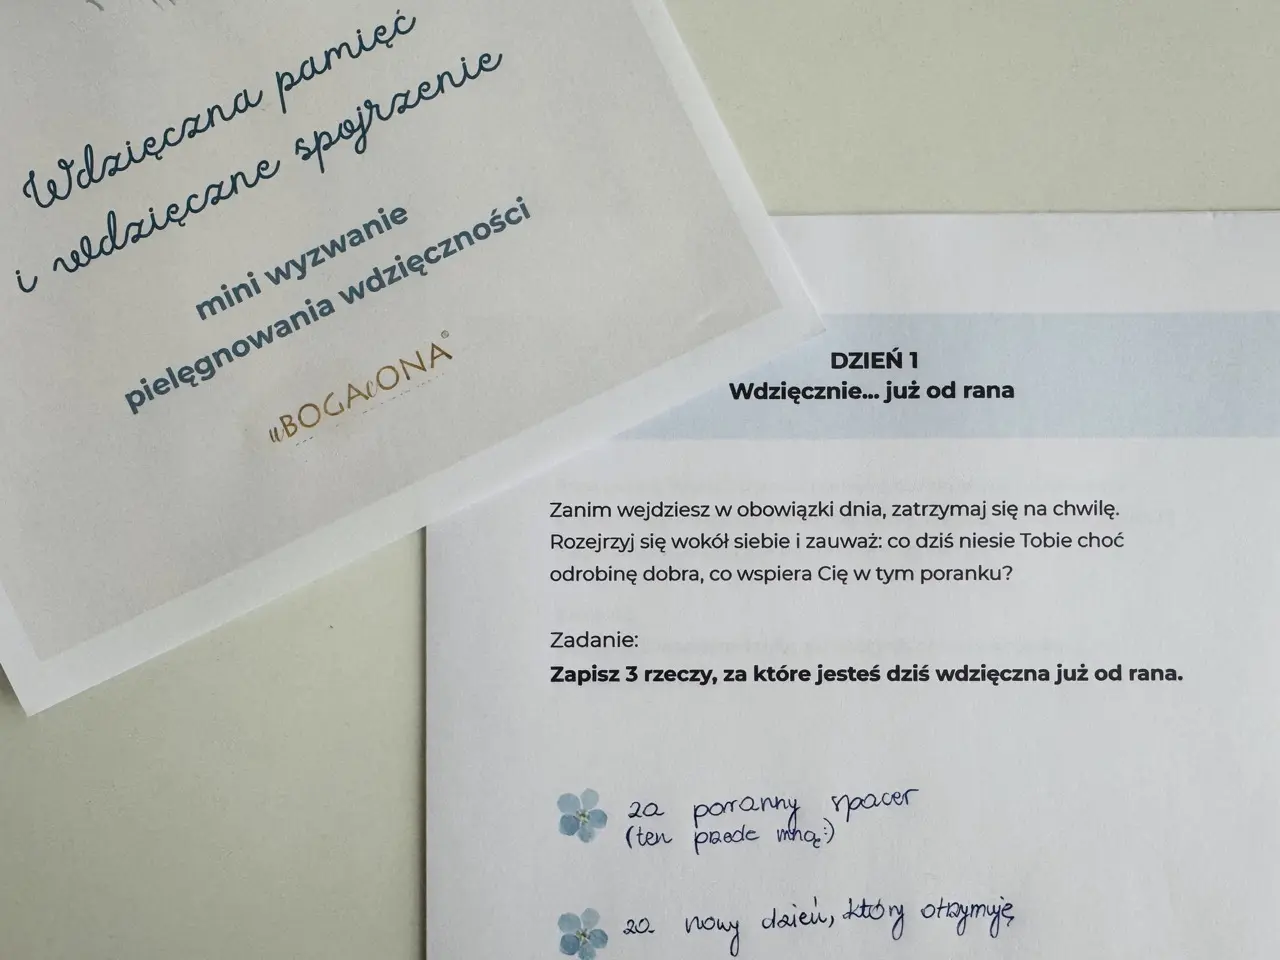 Wdzięczna pamięć
i wdzięczne spojrzenie
mini wyzwanie
pielęgnowania wdzięczności
uBOGAcONA®
DZIEŃ 1
Wdzięcznie... już od rana
Zanim wejdziesz w obowiązki dnia, zatrzymaj się na chwilę.
Rozejrzyj się wokół siebie i zauważ: co dziś niesie Tobie choć
odrobinę dobra, co wspiera Cię w tym poranku?
Zadanie:
Zapisz 3 rzeczy, za które jesteś dziś wdzięczna już od rana.
za poranny spacer
(ten przede mną:)
za nowy dzień, który otrzymuję